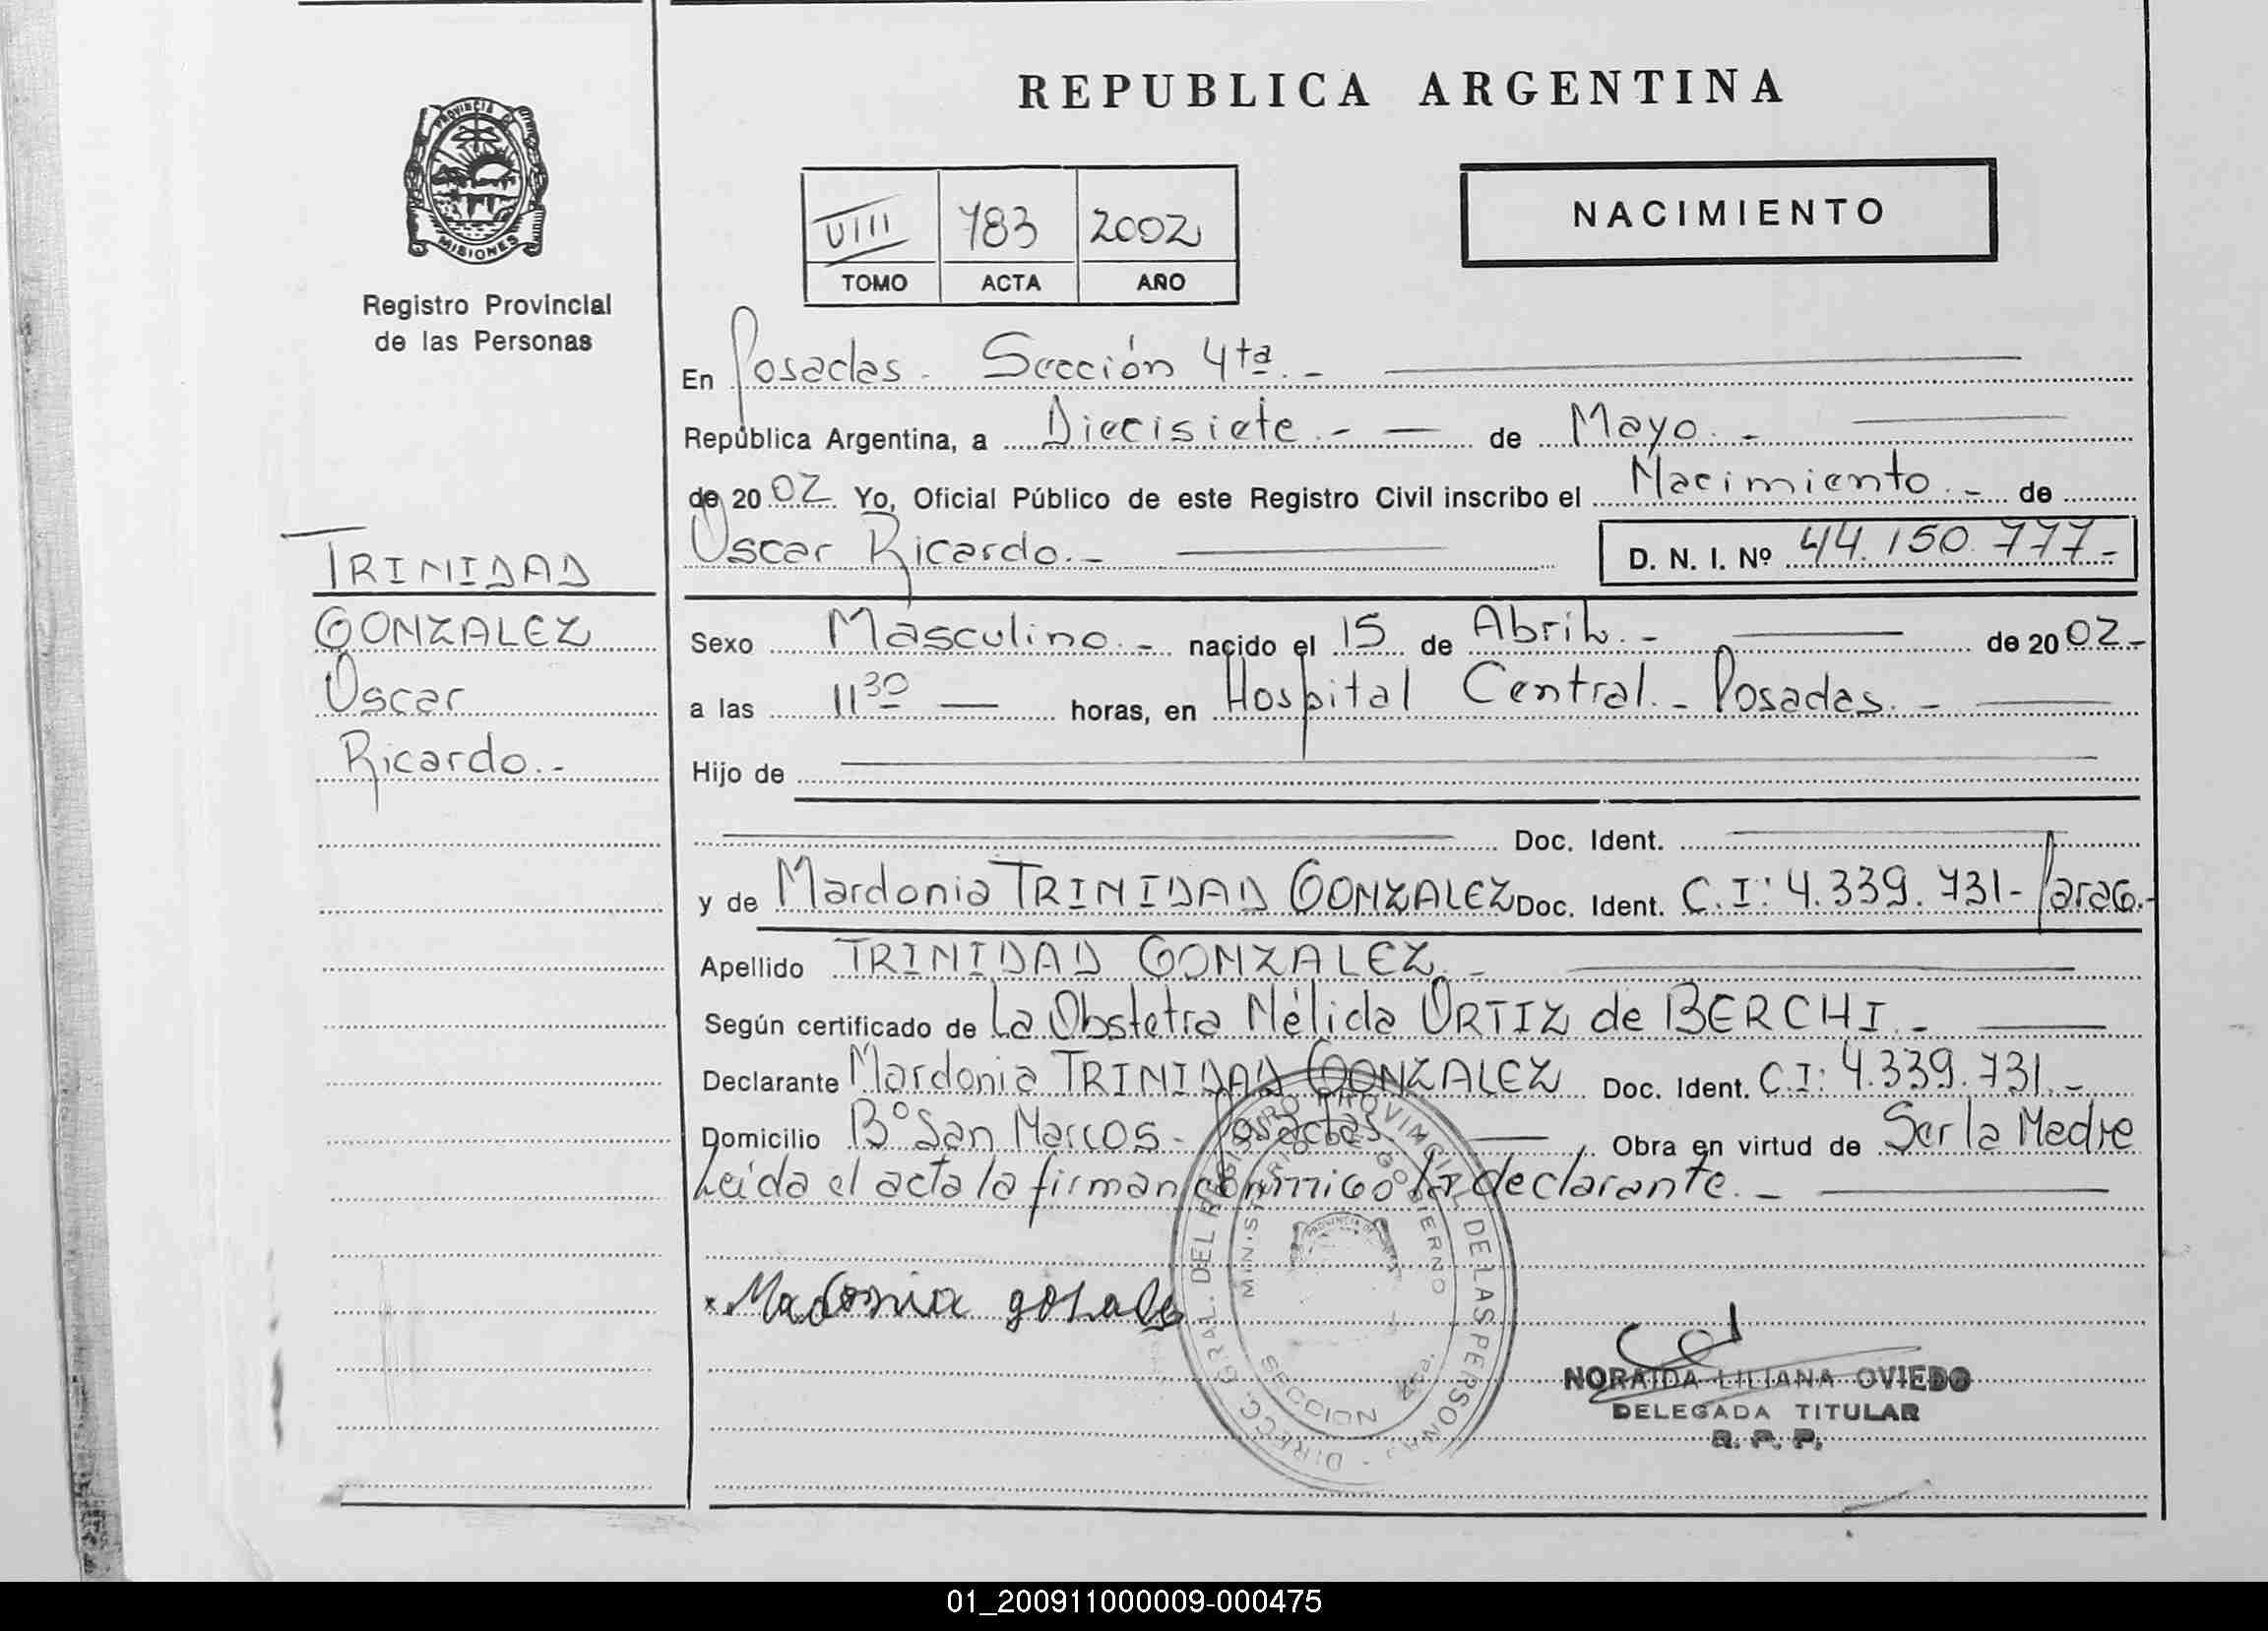 REPUBLICA ARGENTINA
PROVINCIA DE
MISIONES
Registro Provincial
de las Personas
VIII 783 2002
TOMO ACTA AÑO
NACIMIENTO
En Posadas - Sección 4ta. -
República Argentina, a Diecisiete. - de Mayo. -
de 20 02 Yo, Oficial Público de este Registro Civil inscribo el Nacimiento. - de
Oscar Ricardo. - D. N. I. Nº 44.150.777-
TRINIDAD
GONZALEZ
Oscar
Ricardo. -
Sexo Masculino. - nacido el 15 de Abril. - de 20 02-
a las 11 30 horas, en Hospital Central. - Posadas. -
Hijo de
Doc. Ident.
y de Mardonia TRINIDAD GONZALEZ Doc. Ident. C.I: 4.339.731- Parag.-
Apellido TRINIDAD GONZALEZ. -
Según certificado de La Obstetra Nélida ORTIZ de BERCHI. -
Declarante Mardonia TRINIDAD GONZALEZ Doc. Ident. C.I: 4.339.731. -
Domicilio Bº San Marcos - Posadas. - Obra en virtud de Ser la Madre
Leída el acta la firman conmigo la declarante. -
Madonia gosales
DIRECC. GRAL. DEL REGISTRO PROVINCIAL DE LAS PERSONAS
MINISTERIO DE GOBIERNO
PROVINCIA DE
SECCION 4ta.
NORAIDA LILIANA OVIEDO
DELEGADA TITULAR
R. P. P.
01_200911000009-000475